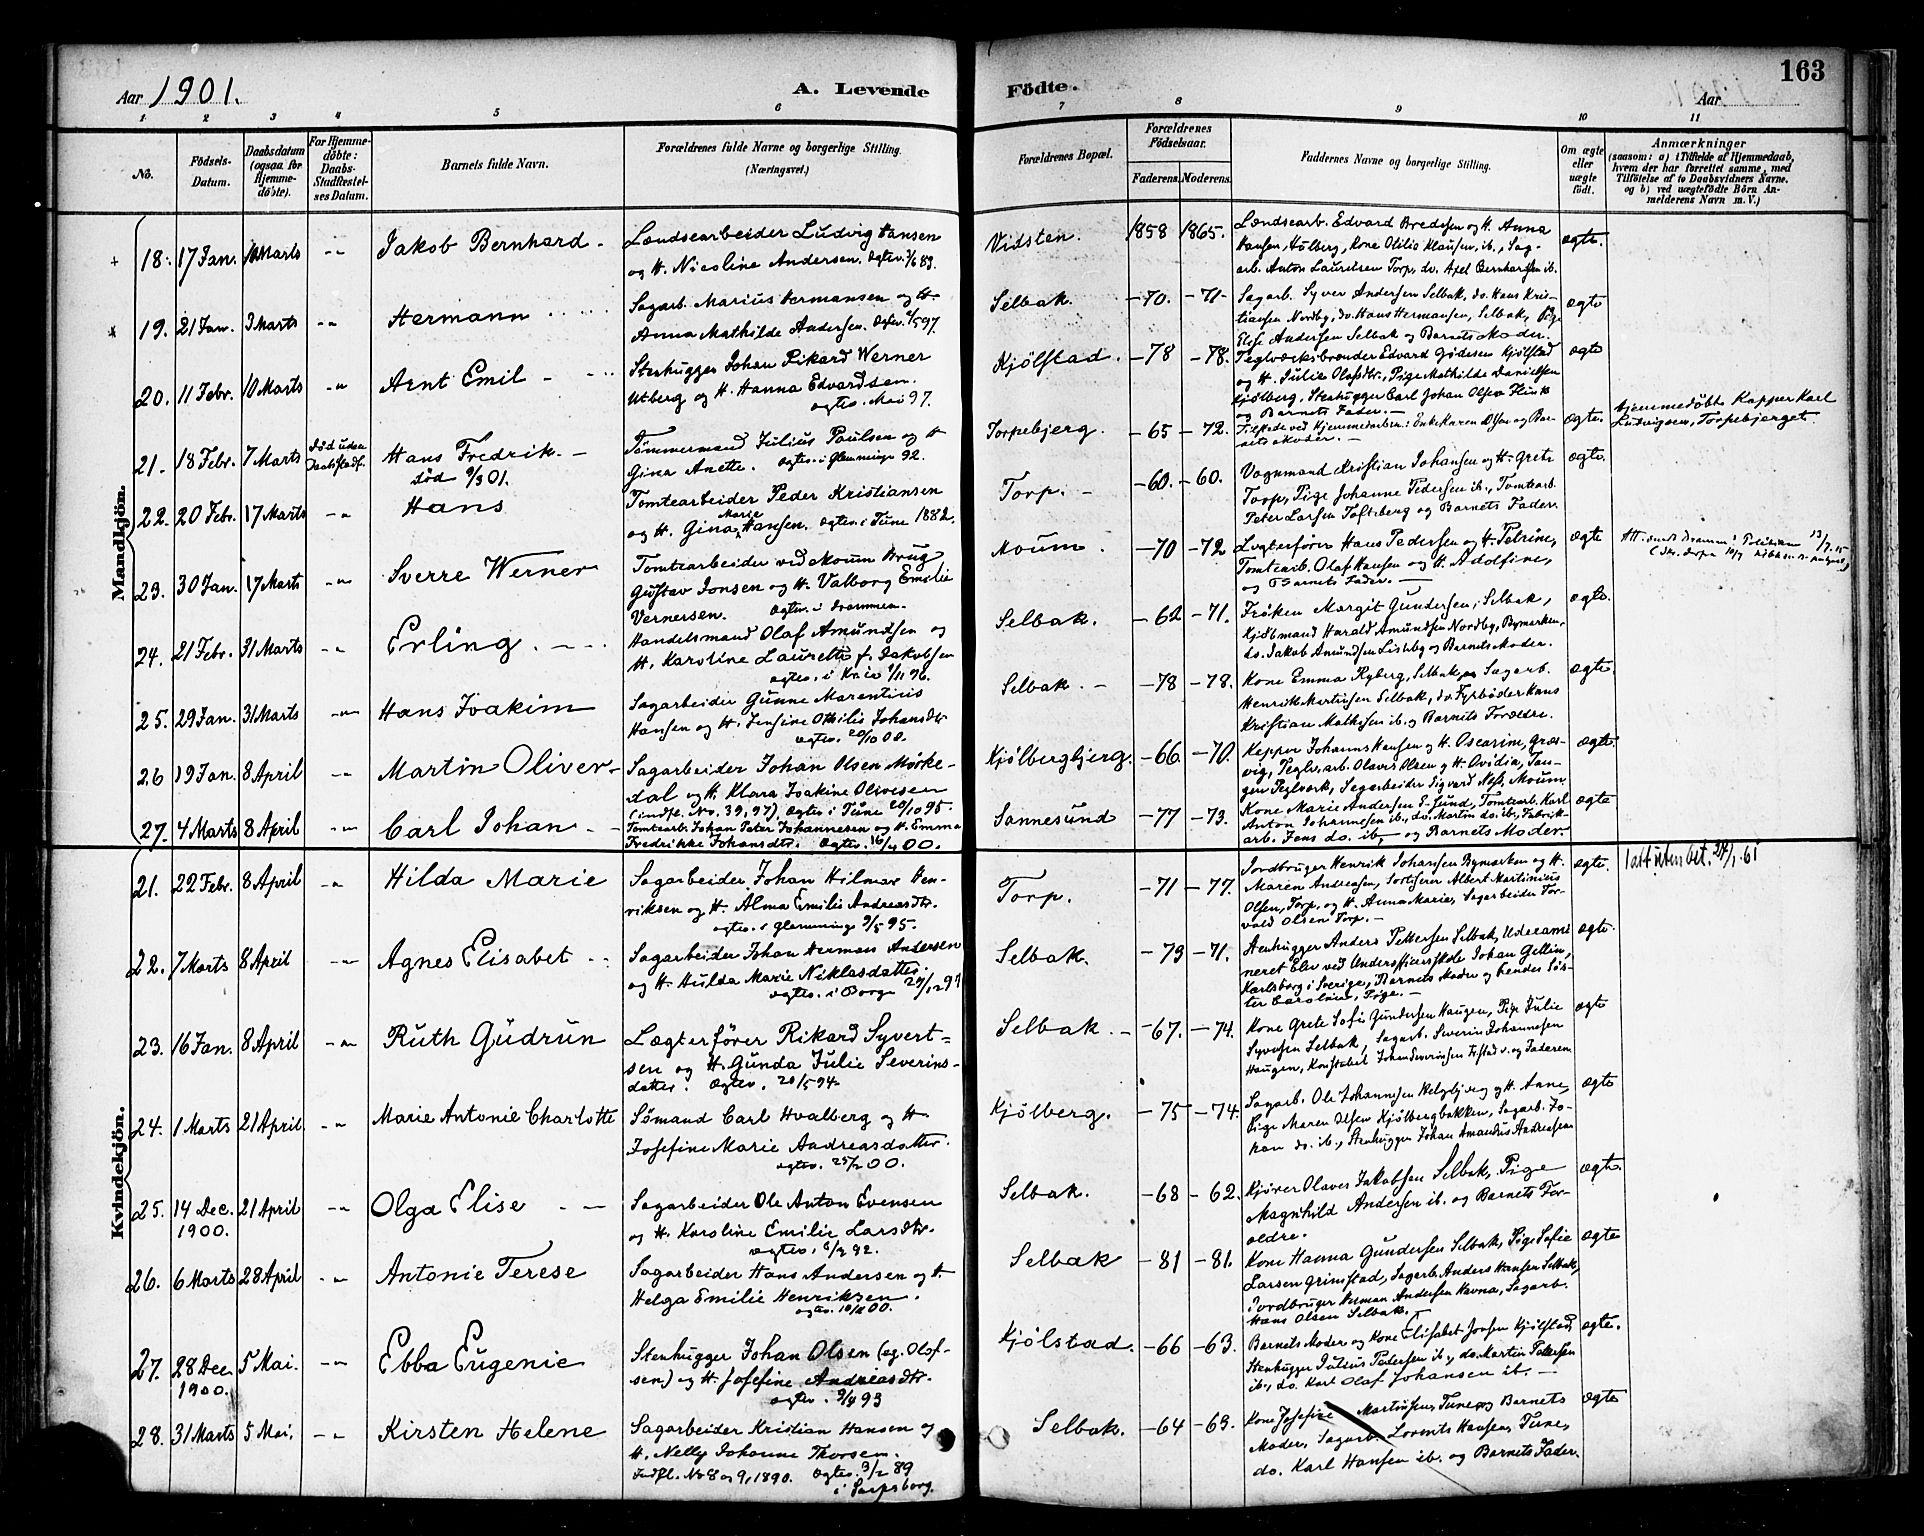 163
Aar 1901.
A. Levende
Födte.
Aar
1 2 3 4 5 6
7 8 9 10 11
No.
Födsels-Datum.
Daabsdatum (ogsaa for Hjemme-döbte).
For Hjemme-döbte: Daabs-Stadfæstel-ses Datum.
Barnets fulde Navn.
Forældrenes fulde Navne og borgerlige Stilling. (Næringsvei.)
Forældrenes Bopæl.
Forældrenes Födselsaar.
Faderens. Moderens.
Faddernes Navne og borgerlige Stilling.
Om ægte eller uægte født.
Anmærkninger
(saasom: a) i Tilfælde af Hjemmedaab,
hvem der har forrettet samme, med
Tilföielse af to Daabsvidners Navne,
og b) ved uægtefödte Börn An-
melderens Navn m. V.)
Mandkjön.
18. 17 Jan. 10 Marts -"- Jakob Bernhard -
Lændsearbeider Ludvig Hansen
og H. Nicoline Andersen.
Vidsten. 1858 1865.
Lændsearb. Edvard Bredesen og H. Anna
Hansen, Holberg, Kone Otilia Klausen, ib., Sag-
arb. Anton Lauritsen Torp, do. Axel Bernhardsen ib.
ægte.
19. 21 Jan. 3 Marts -"- Hermann
Sagarb. Marius Hermansen og H.
Anna Mathilde Andersen.
Selbak. -70. -71.
Sagarb. Syver Andersen Selbak, do. Hans Kris-
tiansen Nordby, do. Hans Hermansen, Selbak, Pige
Else Andersen Selbak og Barnets Moder.
ægte
20. 11 Febr. 10 Marts -"- Arnt Emil -
Stenhugger Johan Rikard Werner
Utberg og H. Hanna Edvardsen.
ægtev. Mai 97.
Kjölstad. -78 -78.
Teglværksbrænder Edvard Gidesen Kjölstad
og H. Julie Olafsdtr., Pige Mathilde Danielsen
Kjölberg, Stenhugger Carl Johan Olsen
og Barnets Fader.
ægte
21. 18 Febr. 7 Marts Hans Fredrik. -
død 9/3 01.
Tømmermand Julius Paulsen og H
Gina Anette. ægtev. i Glemminge 92.
Torpebjerg. -65 -72.
Tilstede ved Hjemmedaaben: Enke Karen Olsen og Bar-
nets Moder.
ægte.
Hjemmedøbt Kapper Karl
Ludvigsen, Torpebjerget.
22. 20 Febr. 17 Marts -"- Hans
Tomtearbeider Peder Kristiansen
og H. Gina Marie Hansen. ægtev. i Tune 1882.
Torp. - -60. -60.
Vognmand Kristian Johansen og H. Grete
Torp, Pige Johanne Pedersen ib., Tomtearb.
Peter Larsen Tofteberg og Barnets Fader.
ægte.
23. 30 Jan. 17 Marts -"- Sverre Werner
Tomtearbeider ved Moum Brug
Gustav Jonsen og H. Valborg Emilie
Vernersen. ægtev. i Drammen.
Moum. -70 -72
Lægterfører Hans Pedersen og H. Petrine,
Tomtearb. Olaf Hansen og H. Adolfine,
og Barnets Fader.
ægte
24. 21 Febr. 31 Marts -"- Erling. -
Handelsmand Olaf Amundsen og
H. Karoline Laurette f. Jakobsen
Selbak. -62 -71.
Frøken Margit Gundersen, Selbak,
Kjöbmand Harald Amundsen Nordby, Bymarken,
do. Jakob Amundsen Lisleby og Barnets Moder.
ægte.
25. 29 Jan. 31 Marts -"- Hans Joakim
Sagarbeider Gunne Marentius
Hansen og H. Jensine Othilie Johansdtr
ægtev. 20/10 00.
Selbak. - -78 -78.
Kone Emma Ryberg, Selbak, Sagarb.
Henrik Martinsen Selbak, do. Fyrbøder Hans
Kristian Mathisen ib. og Barnets Forældre.
ægte.
26 19 Jan. 8 April -"- Martin Oliver -
Sagarbeider Johan Olsen Mørke-
dal og H. Klara Joakine Olivesen
(indfl. No. 39, 97), ægtev i Tune 20/10 95.
Kjölbergbjerg. -66 -70.
Kapper Johannes Hansen og H. Oscarine, Græs-
vig, Teglv.arb. Olaves Olsen og H. Ovidia, Tan-
gen Teglværk, Sagarbeider Sigvard Næs, Moum
ægte.
27. 4 Marts 8 April -"- Carl Johan -
Tomtearb. Johan Peter Johannesen og H. Emma
Fredrikke Johansdtr. ægtev. 16/4 00.
Sannesund -77 -73.
Kone Marie Andersen S.sund, Tomtearb. Karl
Anton Johannesen ib., do. Martin do. ib., Fabrik-
arb. Jens do. ib. og Barnets Moder.
ægte
Kvindekjön.
21. 22 Febr. 8 April -"- Hilda Marie
Sagarbeider Johan Hilmar Hen-
riksen og H. Alma Emilie Andreasdtr.
ægtev. i Glemminge 9/5 95.
Torp. -71 -77.
Jordbruger Henrik Johansen Bymarken og H.
Maren Andreasen, Sortherer Albert Martinius
Olsen, Torp, og H. Anna Marie, Sagarbeider Tor-
vald Olsen Torp.
ægte.
1 att utenbet. 24/1.61
22. 7 Marts 8 April -"- Agnes Elisabet -
Sagarbeider Johan Herman Andersen
og H. Hulda Marie Niklasdatter.
ægtev. i Borge
Selbak. -73 -71.
Stenhugger Anders Pettersen Selbak, Udexami
neret Elev ved Underofficersskole Johan Gellin,
Karlsborg i Sverige, Barnets Moder og hendes Søs-
ter Caroline, Pige.
ægte.
23. 16 Jan. 8 April -"- Ruth Gudrun
Lægterfører Rikard Syvert-
sen og H. Gunda Julie Severins-
datter. ægtev. 20/5 94
Selbak. - -67. -74.
Kone Grete Sofie Gundersen Haugen, Pige Julie
Syversen Selbak, Sagarb. Severin Johannesen
Haugen, Konstabel Johan Severinsen og Faderen
ægte
24. 1 Marts 21 April -"- Marie Antonie Charlotte
Sömand Carl Hvalberg og H
Josefine Marie Andreasdatter.
ægtev. 25/2 00.
Kjölberg. -75 -74.
Sagarb. Ole Johannesen Helgebjerg og H. Anne,
Pige Maren Olsen Kjölbergbakken, Sagarb. Jo-
han do. ib., Stenhugger Johan Amandus Andreassen
ægte
25. 14 Dec. 1900. 21 April -"- Olga Elise - -
Sagarbeider Ole Anton Evensen
og H. Karoline Emilie Larsdtr.
Selbak. -68 -62.
Kjører Olaves Jakobsen Selbak, Pige
Magnhild Andersen ib. og Barnets For-
ældre.
ægte
26. 6 Marts 28 April -"- Antonie Terese
Sagarbeider Hans Andersen og H.
Helga Emilie Henriksen.
Selbak -81 -81.
Kone Hanna Gundersen Selbak, Pige Sofie
Larsen Grimstad, Sagarb. Anders Hansen Selbak,
Jordbruger Herman Andersen Havna, Sagarb.
Hans Olsen Selbak.
ægte
27. 28 Dec 1900. 5 Mai. -"- Ebba Eugenie
Stenhugger Johan Olsen (eg. Olof-
sen) og H. Josefine Andreasdtr.
ægtev. 3/4 93
Kjölstad. -66 -63.
Barnets Moder og Kone Elisabet Jonsen Kjölstad,
Stenhugger Julius Pedersen ib., do. Martin Petersen
ib., do. Karl Olaf Johansen ib.
ægte.
28. 31 Marts 5 Mai, -"- Kirsten Helene
Sagarbeider Kristian Hansen og
H. Nelly Johanne Thorsen.
Indfl. No 8 og 9, 1890. ægtev. 3/2 89
i Sarpsborg.
Selbak. -64 -63.
Kone Josefine Martinsen, Tune, og Barnets
Moder, Sagarb. Lorents Hansen, Tune,
do. Karl Hansen ib. og Barnets Fader.
ægte